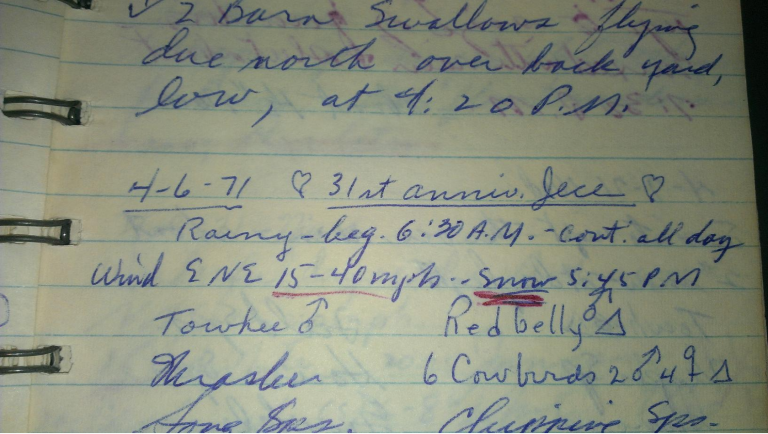 ✓ 2 Barn Swallows flying
due north over back yard,
low, at 4:20 P.M.
4-6-71 ♡ 31st anniv. Jece ♡
Rainy - beg. 6:30 A.M. - cont. all day
Wind ENE 15-40 mph.. Snow 5:45 PM
Towhee ♂ Red belly ♂ Δ
Thrasher 6 Cowbirds 2 ♂ 4 ♀ Δ
Song Sps. Chipping Sps.